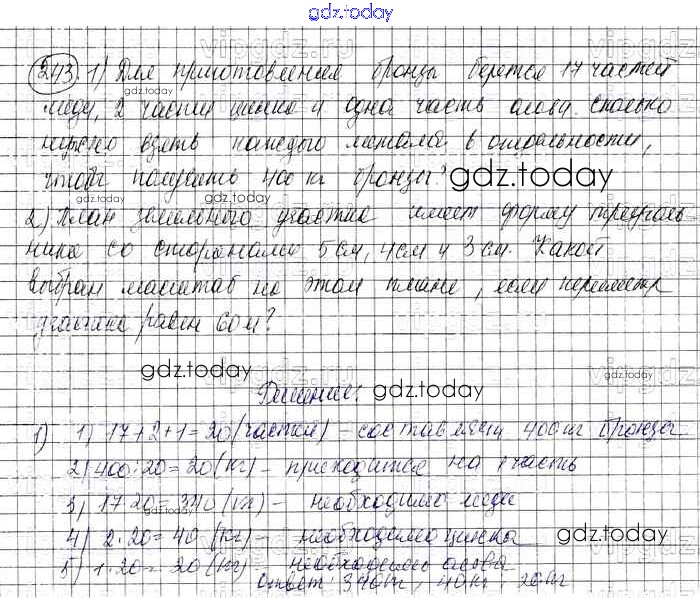 gdz.today
243. 1) Для приготовления бронзы берется 17 частей
gdz.today
меди, 2 части цинка и одна часть олова. сколько
нужно взять каждого металла в отдельности,
чтобы получить 400 кг бронзы? gdz.today
gdz.today
2) План земельного участка имеет форму треуголь
ника со сторонами 5 см, 4 см и 3 см. Какой
выбран масштаб на этом плане, если периметр
участка равен 60 м?
gdz.today
Решение: gdz.today
1) 1) 17+2+1=20 (частей) – составляют 400 кг бронзы
2) 400:20=20 (кг) – приходится на 1 часть
3) 17·20=340 (кг) – необходимо меди
gdz.today
4) 2·20=40 (кг) – необходимо цинка gdz.today
5) 1·20=20 (кг) – необходимо олова
ответ: 340кг, 40кг, 20кг